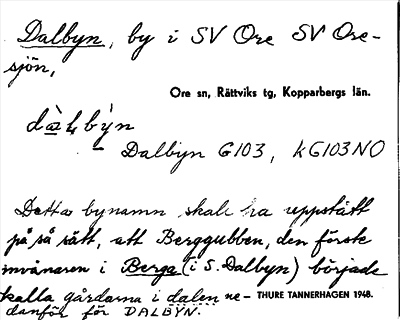 Dalbyn, by i SV Ore SV Ore-
sjön,
Ore sn, Rättviks tg, Kopparbergs län.
Dalbyn G103, kG103NO
Detta bynamn skall ha uppstått
på så sätt, att Berggubben, den förste
invånaren i Berga (i S. Dalbyn) började
kalla gårdarna i dalen ne- THURE TANNERHAGEN 1948.
danför för DALBYN.